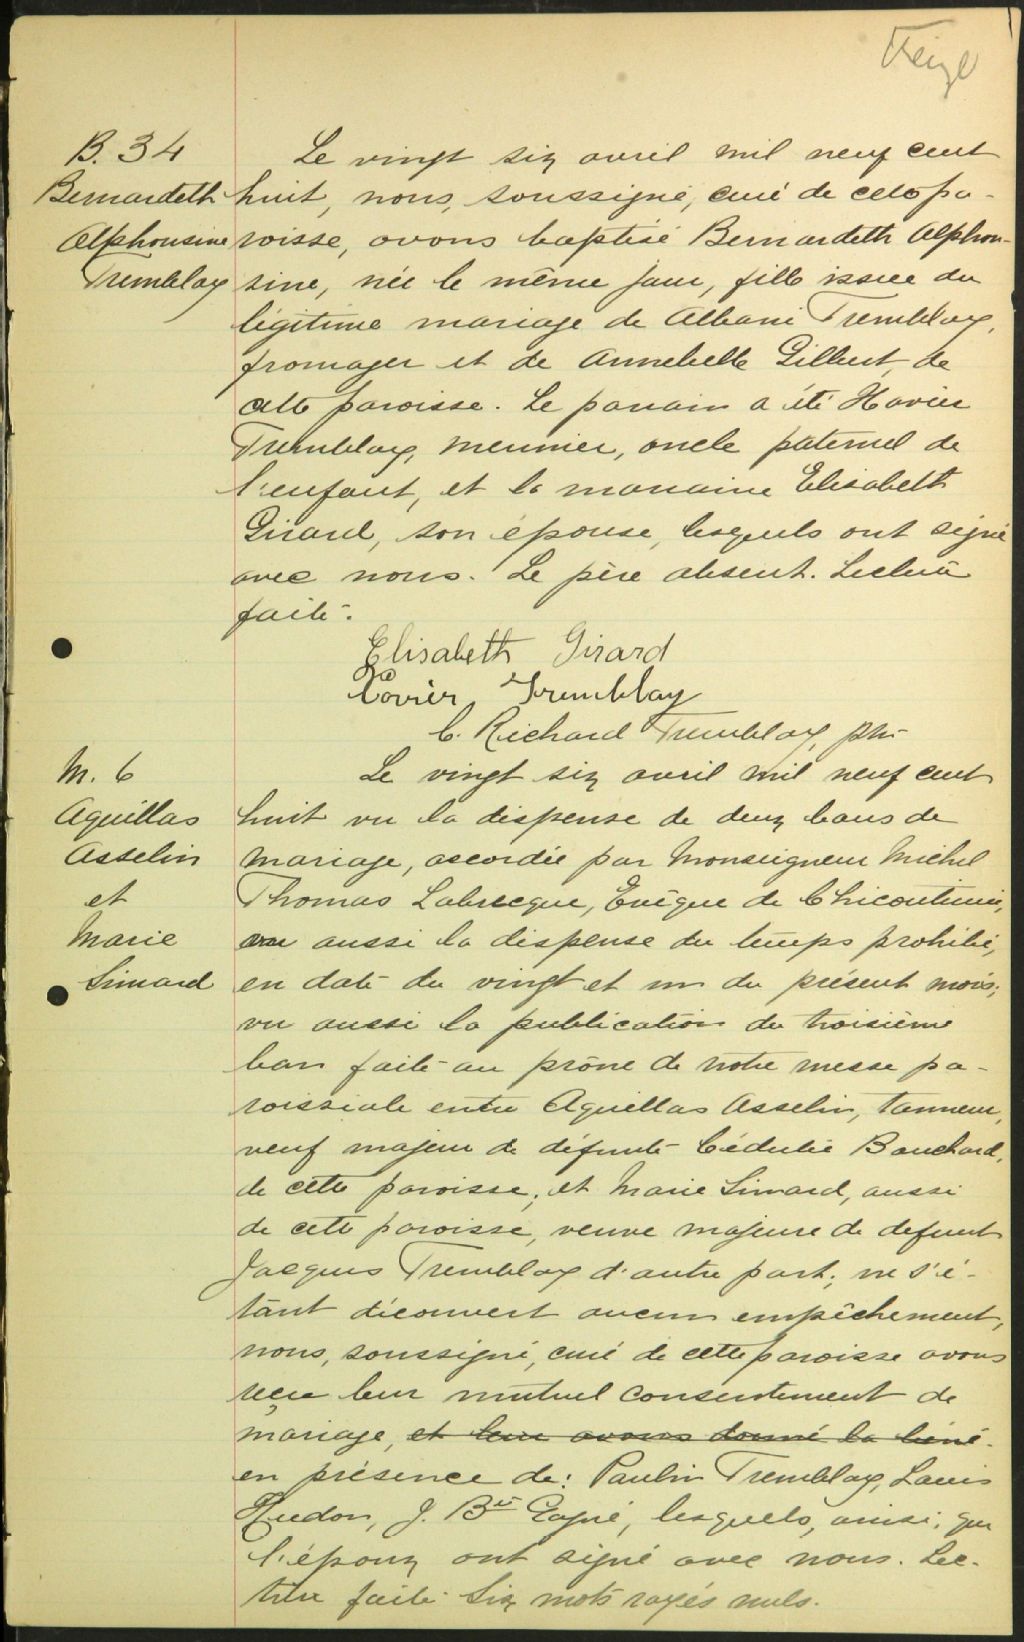 Treize
B. 34
Bernardeth
Alphonsine
Tremblay
Le vingt six avril mil neuf cent
huit, nous, soussigné, curé de cette pa-
roisse, avons baptisé Bernardeth Alphon-
sine, née le même jour, fille issue du
légitime mariage de Albani Tremblay,
fromager et de Annebelle Gilbert, de
cette paroisse. Le parrain a été Xavier
Tremblay, meunier, oncle paternel de
l'enfant, et la marraine Elisabeth
Girard, son épouse, lesquels ont signé
avec nous. Le père absent. Lecture
faite.
Elisabeth Girard
Xavier Tremblay
C. Richard Tremblay, ptre
M. 6
Aquillas
Asselin
et
Marie
Simard
Le vingt six avril mil neuf cent
huit vu la dispense de deux bans de
mariage, accordée par Monseigneur Michel
Thomas Labrecque, Evêque de Chicoutimi,
vu aussi la dispense du temps prohibé,
en date du vingt et un du présent mois;
vu aussi la publication du troisième
ban faite au prône de notre messe pa-
roissiale entre Aquillas Asselin, tanneur,
veuf majeur de défunte Cédulie Bouchard,
de cette paroisse, et Marie Simard, aussi
de cette paroisse, veuve majeure de defunt
Jacques Tremblay d'autre part; ne s'é-
tant découvert aucun empêchement,
nous, soussigné, curé de cette paroisse avons
reçu leur mutuel consentement de
mariage, et leur avons donné la béné-
en présence de: Paulin Tremblay, Louis
Hudon, J. Bte Gagné, lesquels, ainsi que
l'époux ont signé avec nous. Lec-
ture faite Six mots rayés nuls.